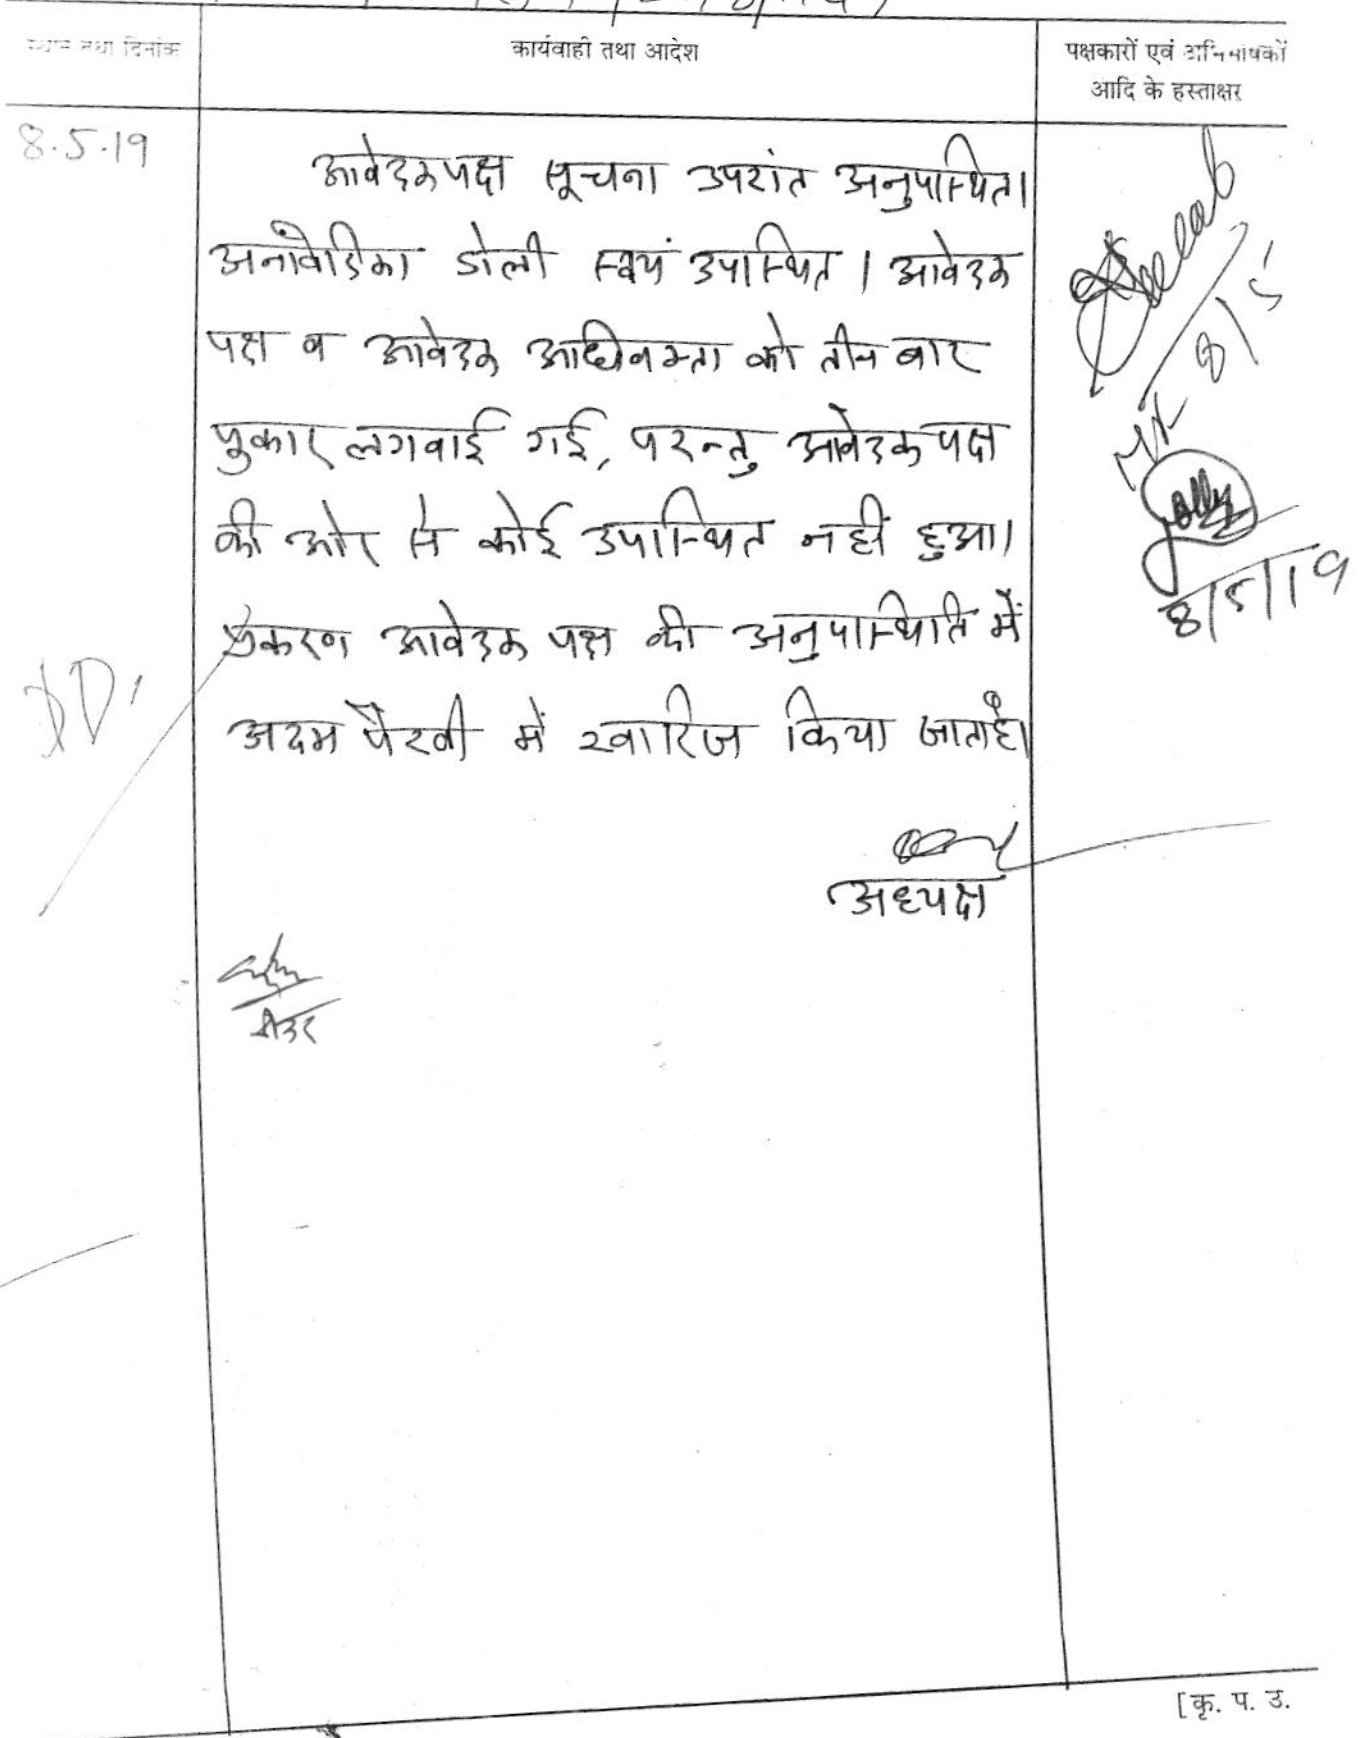 स्थान तथा दिनांक
कार्यवाही तथा आदेश
पक्षकारों एवं अभिभाषकों
आदि के हस्ताक्षर
8.5.19
आवेदक पक्ष सूचना उपरांत अनुपस्थित।
अनावेदिका डोली स्वयं उपस्थित। आवेदक
पक्ष व आवेदक अधिवक्ता को तीन बार
पुकार लगवाई गई, परन्तु आवेदक पक्ष
की ओर से कोई उपस्थित नहीं हुआ।
प्रकरण आवेदक पक्ष की अनुपस्थिति में
अदम पैरवी में खारिज किया जाता है।
अध्यक्ष
8/5
8/5/19
[कृ. प. उ.